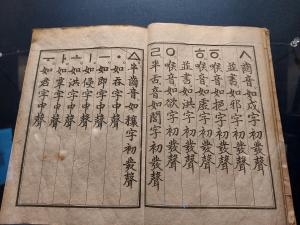 ㅅ。齒音如戌字初發聲
並書如邪字初發聲
ㆆ。喉音如挹字初發聲
ㅎ。喉音如虛字初發聲
並書如洪字初發聲
ㅇ。喉音如欲字初發聲
ㄹ。半舌音如閭字初發聲
ㅿ。半齒音如穰字初發聲
ㆍ。如呑字中聲
ㅡ。如即字中聲
ㅣ。如侵字中聲
ㅗ。如洪字中聲
ㅏ。如覃字中聲
ㅜ。如君字中聲